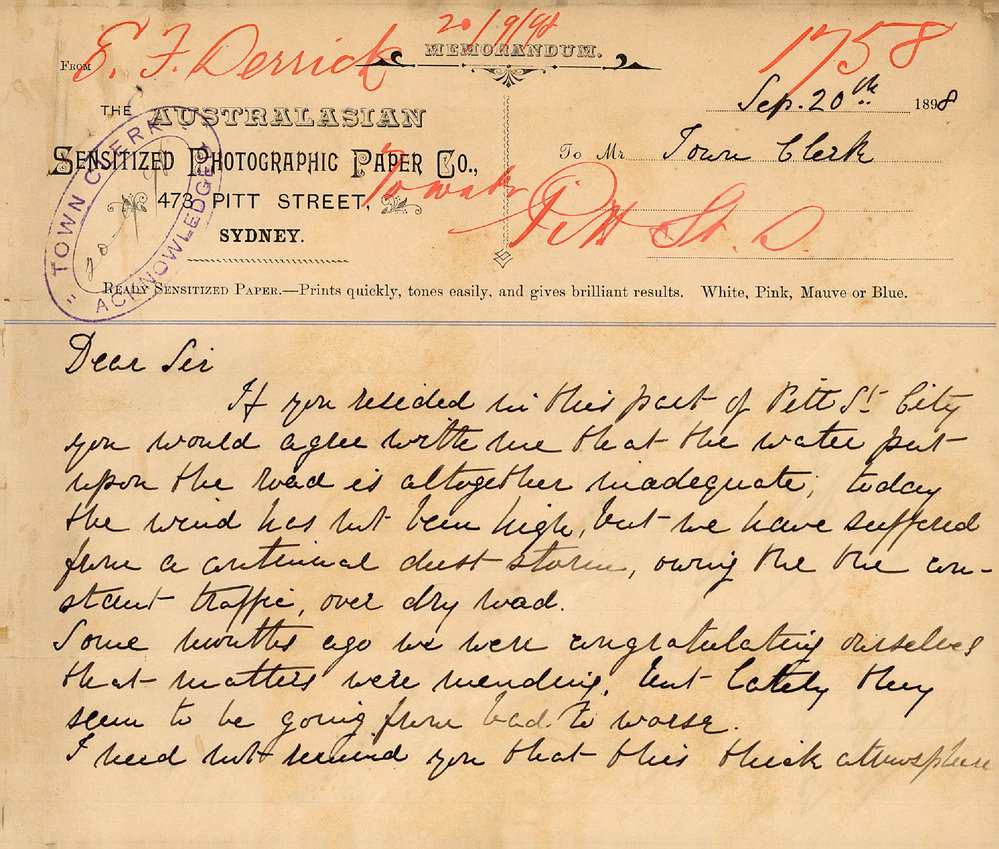 20/9/98
MEMORANDUM.
1758
FROM E. F. Derrick
Sep. 20th 1898
THE AUSTRALASIAN
SENSITIZED PHOTOGRAPHIC PAPER CO.,
To Mr Town Clerk
473 PITT STREET,
Pitt St. S.
SYDNEY.
TOWN CLERK
ACKNOWLEDGED
READY SENSITIZED PAPER.—Prints quickly, tones easily, and gives brilliant results. White, Pink, Mauve or Blue.
Dear Sir
If you resided in this part of Pitt St City
you would agree with me that the water put
upon the road is altogether inadequate; today
the wind has not been high, but we have suffered
from a continual dust storm, owing the the con-
stant traffic, over dry road.
Some months ago we were congratulating ourselves
that matters were mending, but lately they
seem to be going from bad to worse.
I need not remind you that this thick atmosphere